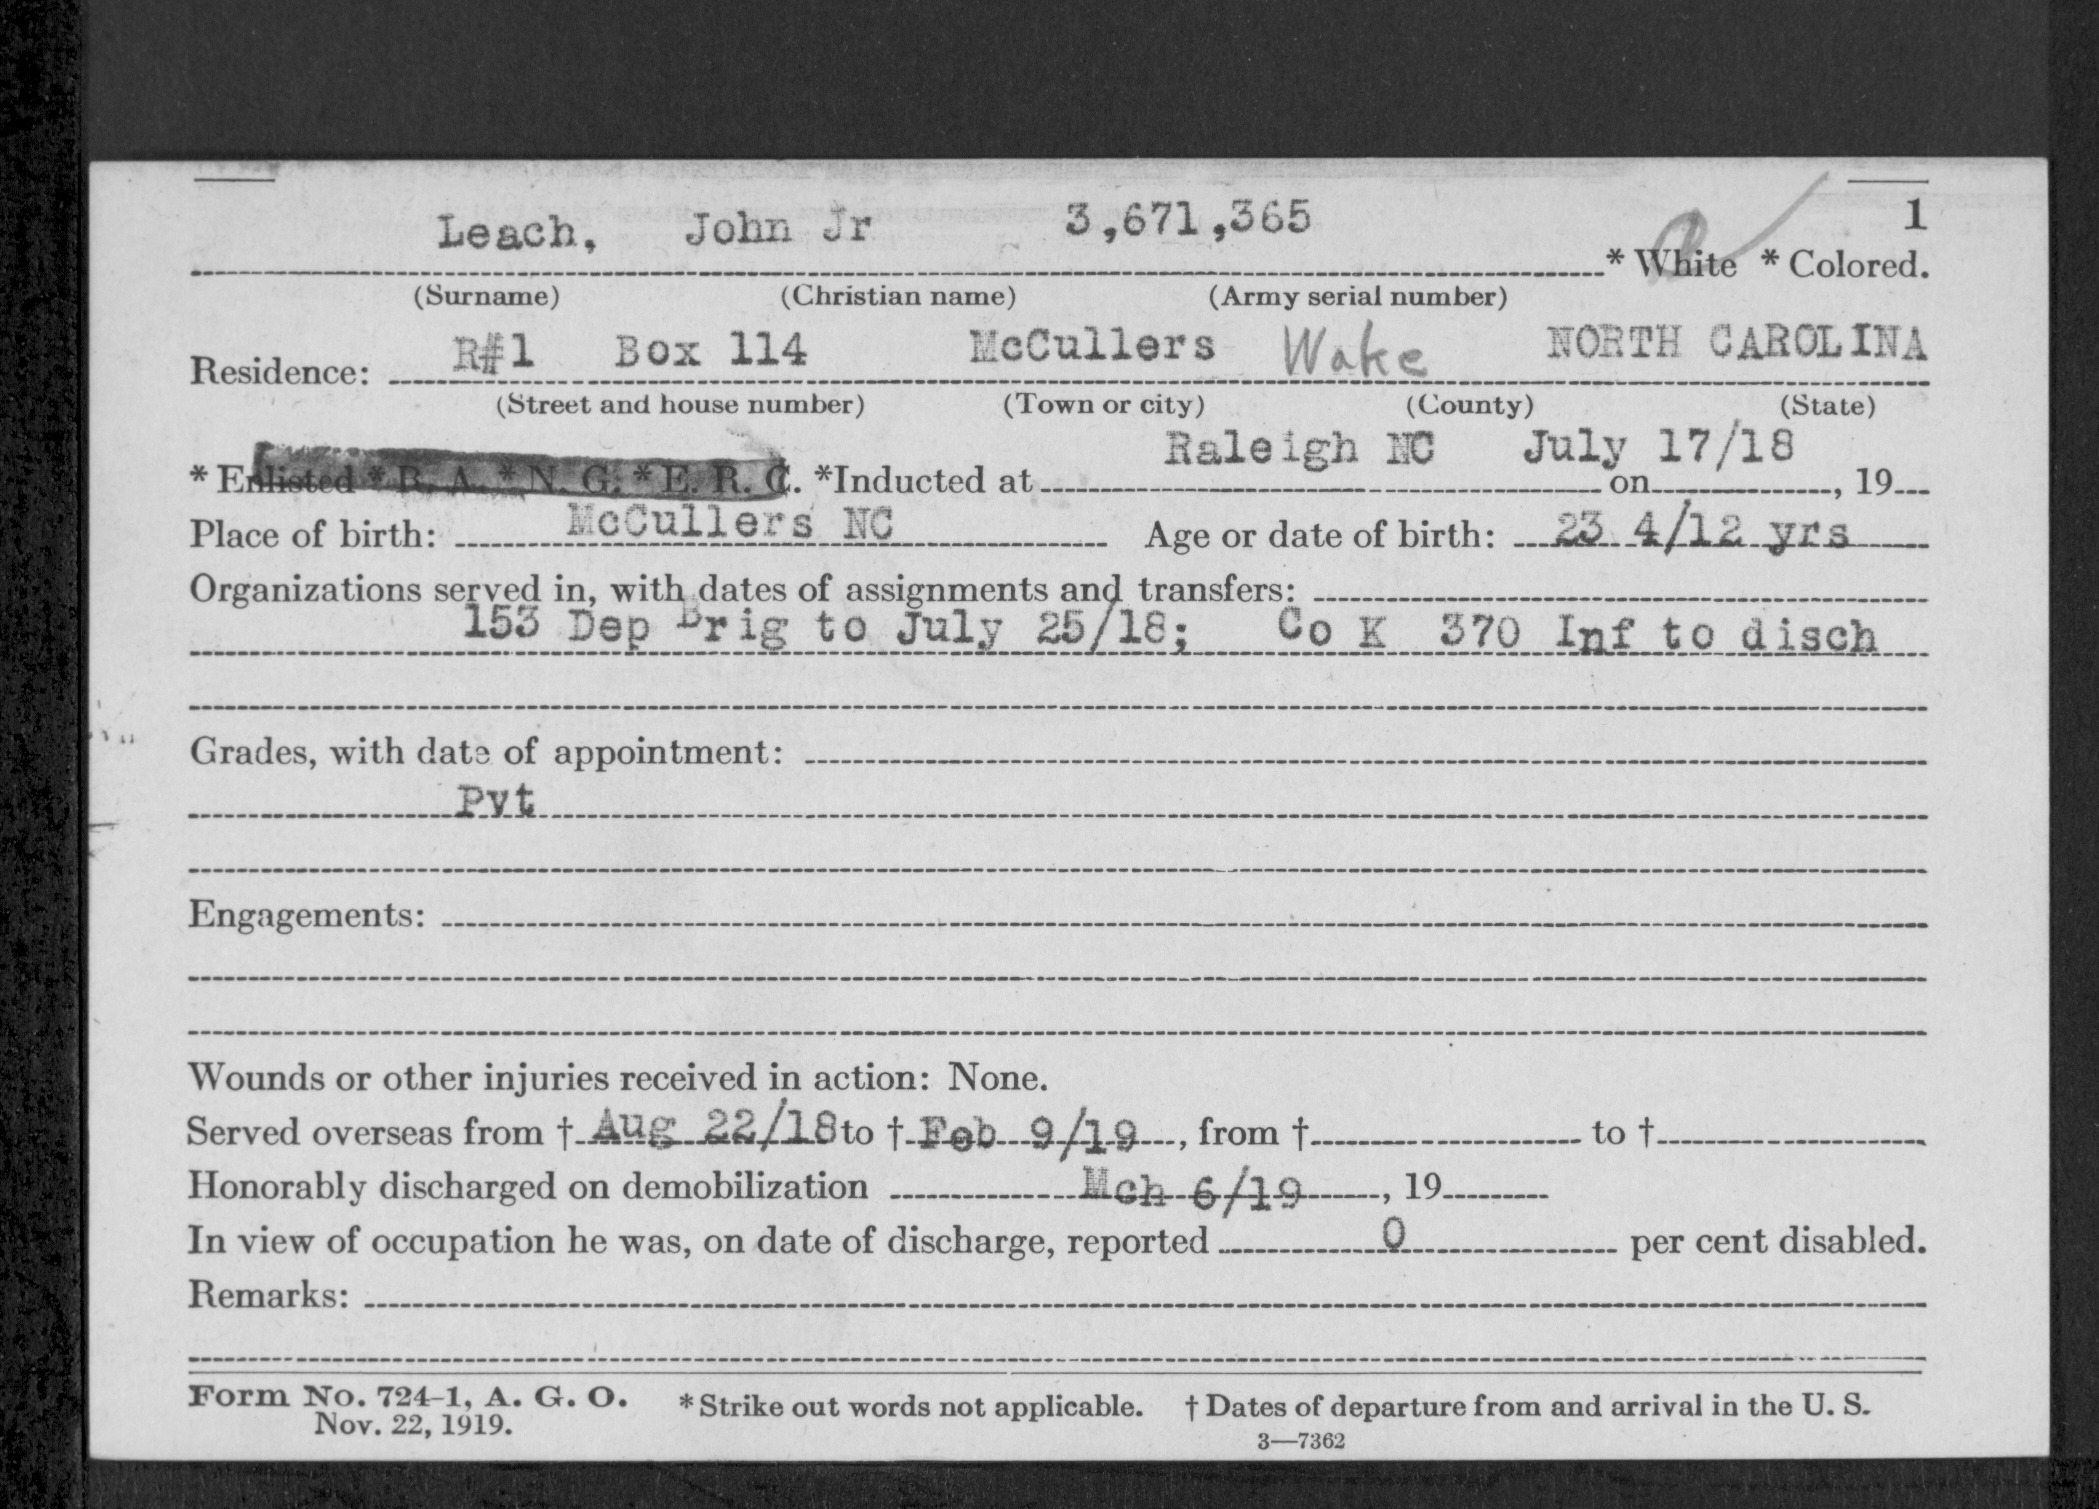 1
Leach, John Jr 3,671,365 * White * Colored.
(Surname) (Christian name) (Army serial number)
Residence: R#1 Box 114 McCullers Wake NORTH CAROLINA
(Street and house number) (Town or city) (County) (State)
* Enlisted * R. A. * N. G. * E. R. C. *Inducted at Raleigh NC on July 17/18, 19
Place of birth: McCullers NC Age or date of birth: 23 4/12 yrs
Organizations served in, with dates of assignments and transfers:
153 Dep Brig to July 25/18; Co K 370 Inf to disch
Grades, with date of appointment:
Pvt
Engagements:
Wounds or other injuries received in action: None.
Served overseas from † Aug 22/18 to † Feb 9/19, from † to †
Honorably discharged on demobilization Mch 6/19, 19
In view of occupation he was, on date of discharge, reported 0 per cent disabled.
Remarks:
Form No. 724-1, A. G. O. * Strike out words not applicable. † Dates of departure from and arrival in the U. S.
Nov. 22, 1919.
3—7362